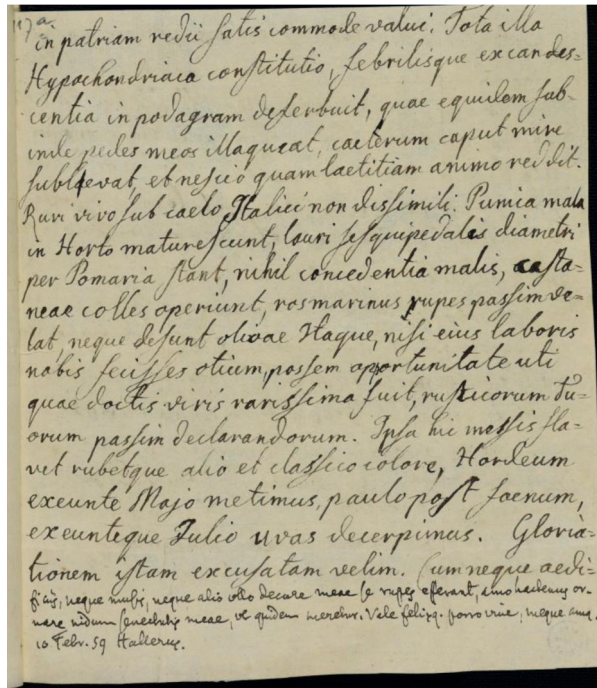 117 a.
in patriam redii satis commode valui. Tota illa
Hypochondriaca constitutio, febrilisque excandes=
centia in podagram deferbuit, quae equidem sub-
inde pedes meos illaqueat, caeterum caput mire
sublevat, et nescio quam laetitiam animo reddit.
Ruri vivo sub caelo Italici non dissimili: Punica mala
in Horto maturescunt, lauri sesquipedalis diametri
per Pomaria stant, nihil concedentia malis, casta=
neae colles operiunt, rosmarinus rupes passim ve=
lat, neque desunt olivae Itaque, nisi eius laboris
nobis fecisses otium, possem opportunitate uti
quae doctis viris rarissima fuit, rusticorum du=
orum passim declarandorum. Ipsa hic messis fla=
vet rubetque alio et classico colore, Hordeum
exeunte Majo metimus, paulo post foenum,
exeunteque Julio uvas decerpimus. Gloria=
tionem istam excusatam velim. Cum neque aedi=
ficiis, neque nubis, neque alio ullo decore meae se rupes efferant, amo hactenus or=
nare nidum senectutis meae, ut quidem meretur. Vale felixq. porro vive, neque
10 Febr. 59 Hallerus.